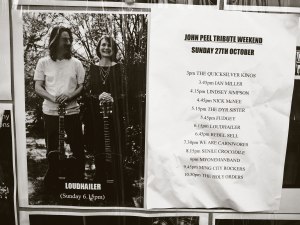 LOUDHAILER
(Sunday 6.15pm)
JOHN PEEL TRIBUTE WEEKEND
SUNDAY 27TH OCTOBER
3pm THE QUICKSILVER KINGS
3.45pm IAN MILLER
4.15pm LINDSEY SIMPSON
4.45pm NICK McNEE
5.15pm THE DYR SISTER
5.45pm FUDGEY
6.15pm LOUDHAILER
6.45pm REBEL SELL
7.30pm WE ARE CARNIVORES
8.15pm SENILE CROCODILE
9pm MYONEMANBAND
9.45pm MING CITY ROCKERS
10.30pm THE HOLY ORDERS